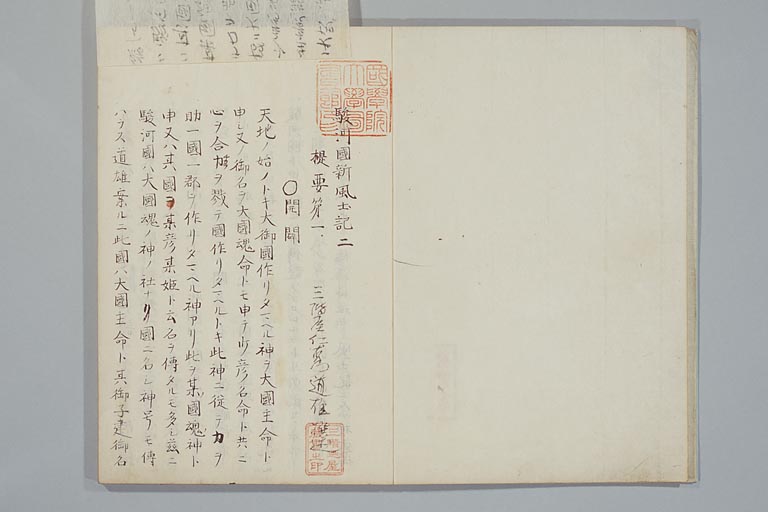 駿河國新風土記二
提要第一
三階屋仁右衛門道雄
〇開闢
天地ノ始ノトキ大御國作リタマヘル神ヲ大國主命ト
申シ又ノ御名ヲ大國魂命トモ申テ少彦名命ト共ニ
心ヲ合セ力ヲ戮テ國作リタマヘルトキ此神ニ從テ力ヲ
助一國一郡ヲ作リタマヘル神アリ此ヲ某國魂神ト
申又ハ其國ヲ某彦某姫ト云名ヲ傳タルモ多シ茲ニ
駿河國ハ大國魂ノ神ノ社ナリ國ニ名シ神号モ傳
ハラス道雄案ルニ此國ハ大國主命ト其御子建御名
國學院大學圖書館印